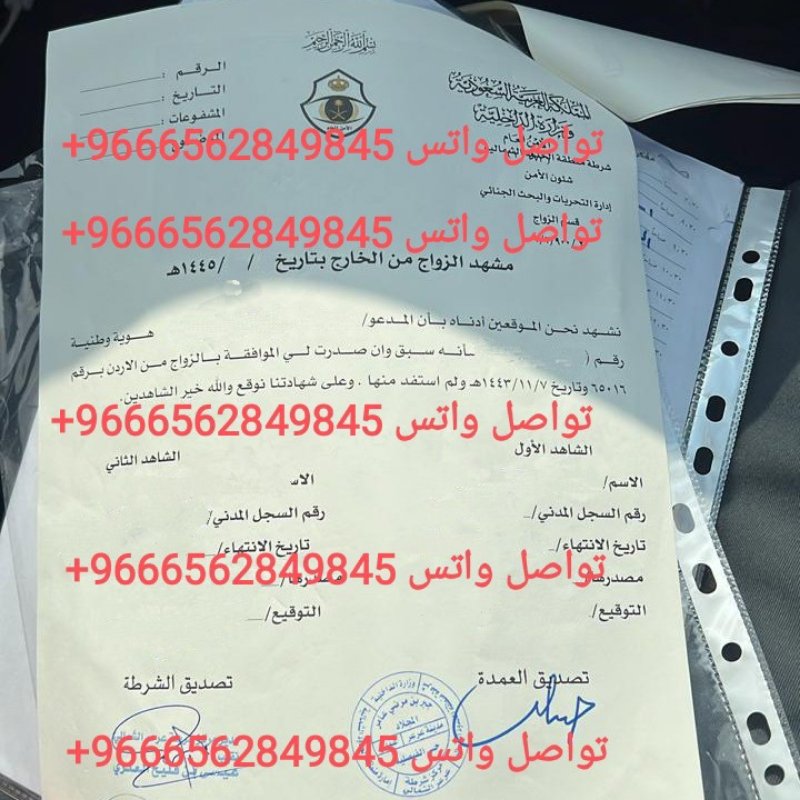 بسم الله الرحمن الرحيم
المملكة العربية السعودية
وزارة الداخلية
الأمن العام
شرطة منطقة الحدود الشمالية
شئون الأمن
إدارة التحريات والبحث الجنائي
قسم الزواج
الرقم :
التاريخ :
المشفوعات :
تواصل واتس 9666562849845+
تواصل واتس 9666562849845+
مشهد الزواج من الخارج بتاريخ / /١٤٤٥هـ
نشهد نحن الموقعين أدناه بأن المدعو/ هوية وطنية
رقم ( بأنه سبق وان صدرت لي الموافقة بالزواج من الاردن برقم
٦٥٠١٦ وتاريخ ١٤٤٣/١١/٧هـ ولم استفد منها . وعلى شهادتنا نوقع والله خير الشاهدين.
تواصل واتس 9666562849845+
الشاهد الأول الشاهد الثاني
الاسم/ الاس
رقم السجل المدني/ رقم السجل المدني/
تاريخ الانتهاء/ تاريخ الانتهاء/
تواصل واتس 9666562849845+
مصدرها/ مصدرها/
التوقيع/ التوقيع/
تصديق العمدة تصديق الشرطة
تواصل واتس 9666562849845+